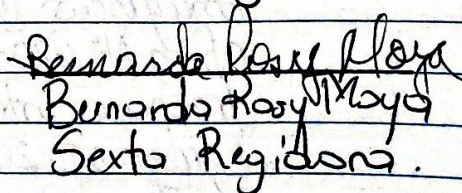 Bernarda Rosy Moya
Bernarda Rosy Moya
Sexta Regidora.